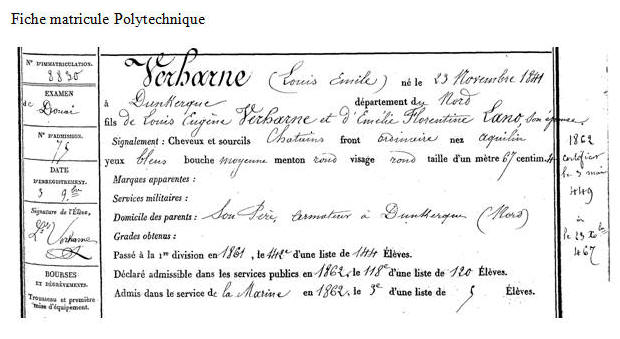 Fiche matricule Polytechnique
N° D'IMMATRICULATION.
8830
EXAMEN
de Douai
N° D'ADMISSION.
75
DATE
D'ENREGISTREMENT.
3 9bre
Signature de l'Élève,
Ls Verharne
BOURSES
ET DÉGRÈVEMENTS.
Trousseau et première
mise d'équipement.
Verharne (Louis Emile) né le 23 Novembre 1841
à Dunkerque département du Nord
fils de Louis Eugène Verharne et d'Emélie Florentine Lano, son épouse
Signalement : Cheveux et sourcils Chatains front ordinaire nez aquilin
yeux bleus bouche moyenne menton rond visage rond taille d'un mètre 67 centim.
Marques apparentes :
Services militaires :
Domicile des parents : Son Père, armateur à Dunkerque (Nord)
Grades obtenus :
Passé à la 1re division en 1861, le 42e d'une liste de 144 Élèves.
Déclaré admissible dans les services publics en 1862, le 118e d'une liste de 120 Élèves.
Admis dans le service de la Marine en 1862, le 3e d'une liste de 5 Élèves.
1862
certificat
le 3 mai
449
le 23
467